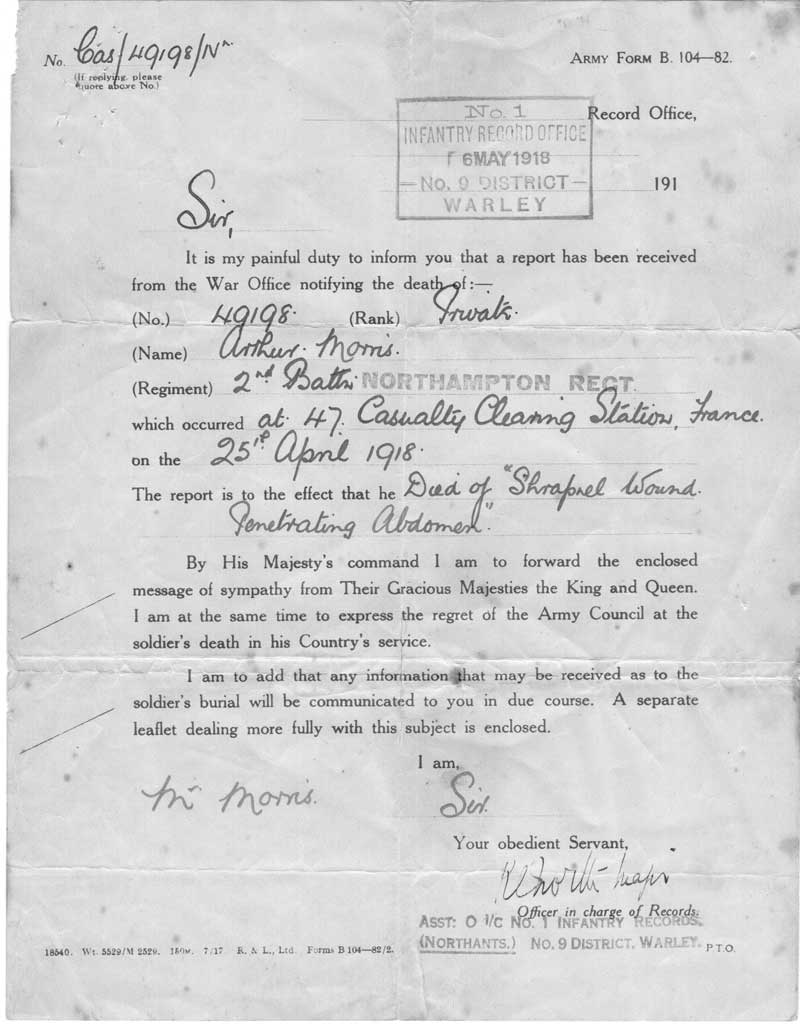 No. Cas/49198/Nr
(If replying, please
quote above No.)
ARMY FORM B. 104—82.
No. 1
INFANTRY RECORD OFFICE
6 MAY 1918
No. 9 DISTRICT
WARLEY
Record Office,
191
Sir,
It is my painful duty to inform you that a report has been received
from the War Office notifying the death of:—
(No.) 49198. (Rank) Private.
(Name) Arthur Morris.
(Regiment) 2nd Battn NORTHAMPTON REGT.
which occurred at 47. Casualty Clearing Station, France.
on the 25th April 1918.
The report is to the effect that he Died of "Shrapnel Wound.
Penetrating Abdomen".
By His Majesty's command I am to forward the enclosed
message of sympathy from Their Gracious Majesties the King and Queen.
I am at the same time to express the regret of the Army Council at the
soldier's death in his Country's service.
I am to add that any information that may be received as to the
soldier's burial will be communicated to you in due course. A separate
leaflet dealing more fully with this subject is enclosed.
I am,
Mr Morris.
Sir.
Your obedient Servant,
Major
Officer in charge of Records.
ASST: O I/C No. 1 INFANTRY RECORDS.
(NORTHANTS.) No. 9 DISTRICT. WARLEY.
P.T.O.
18540. Wt. 5529/M 2529. 150M. 7/17 R. & L., Ltd. Forms B 104—82/2.